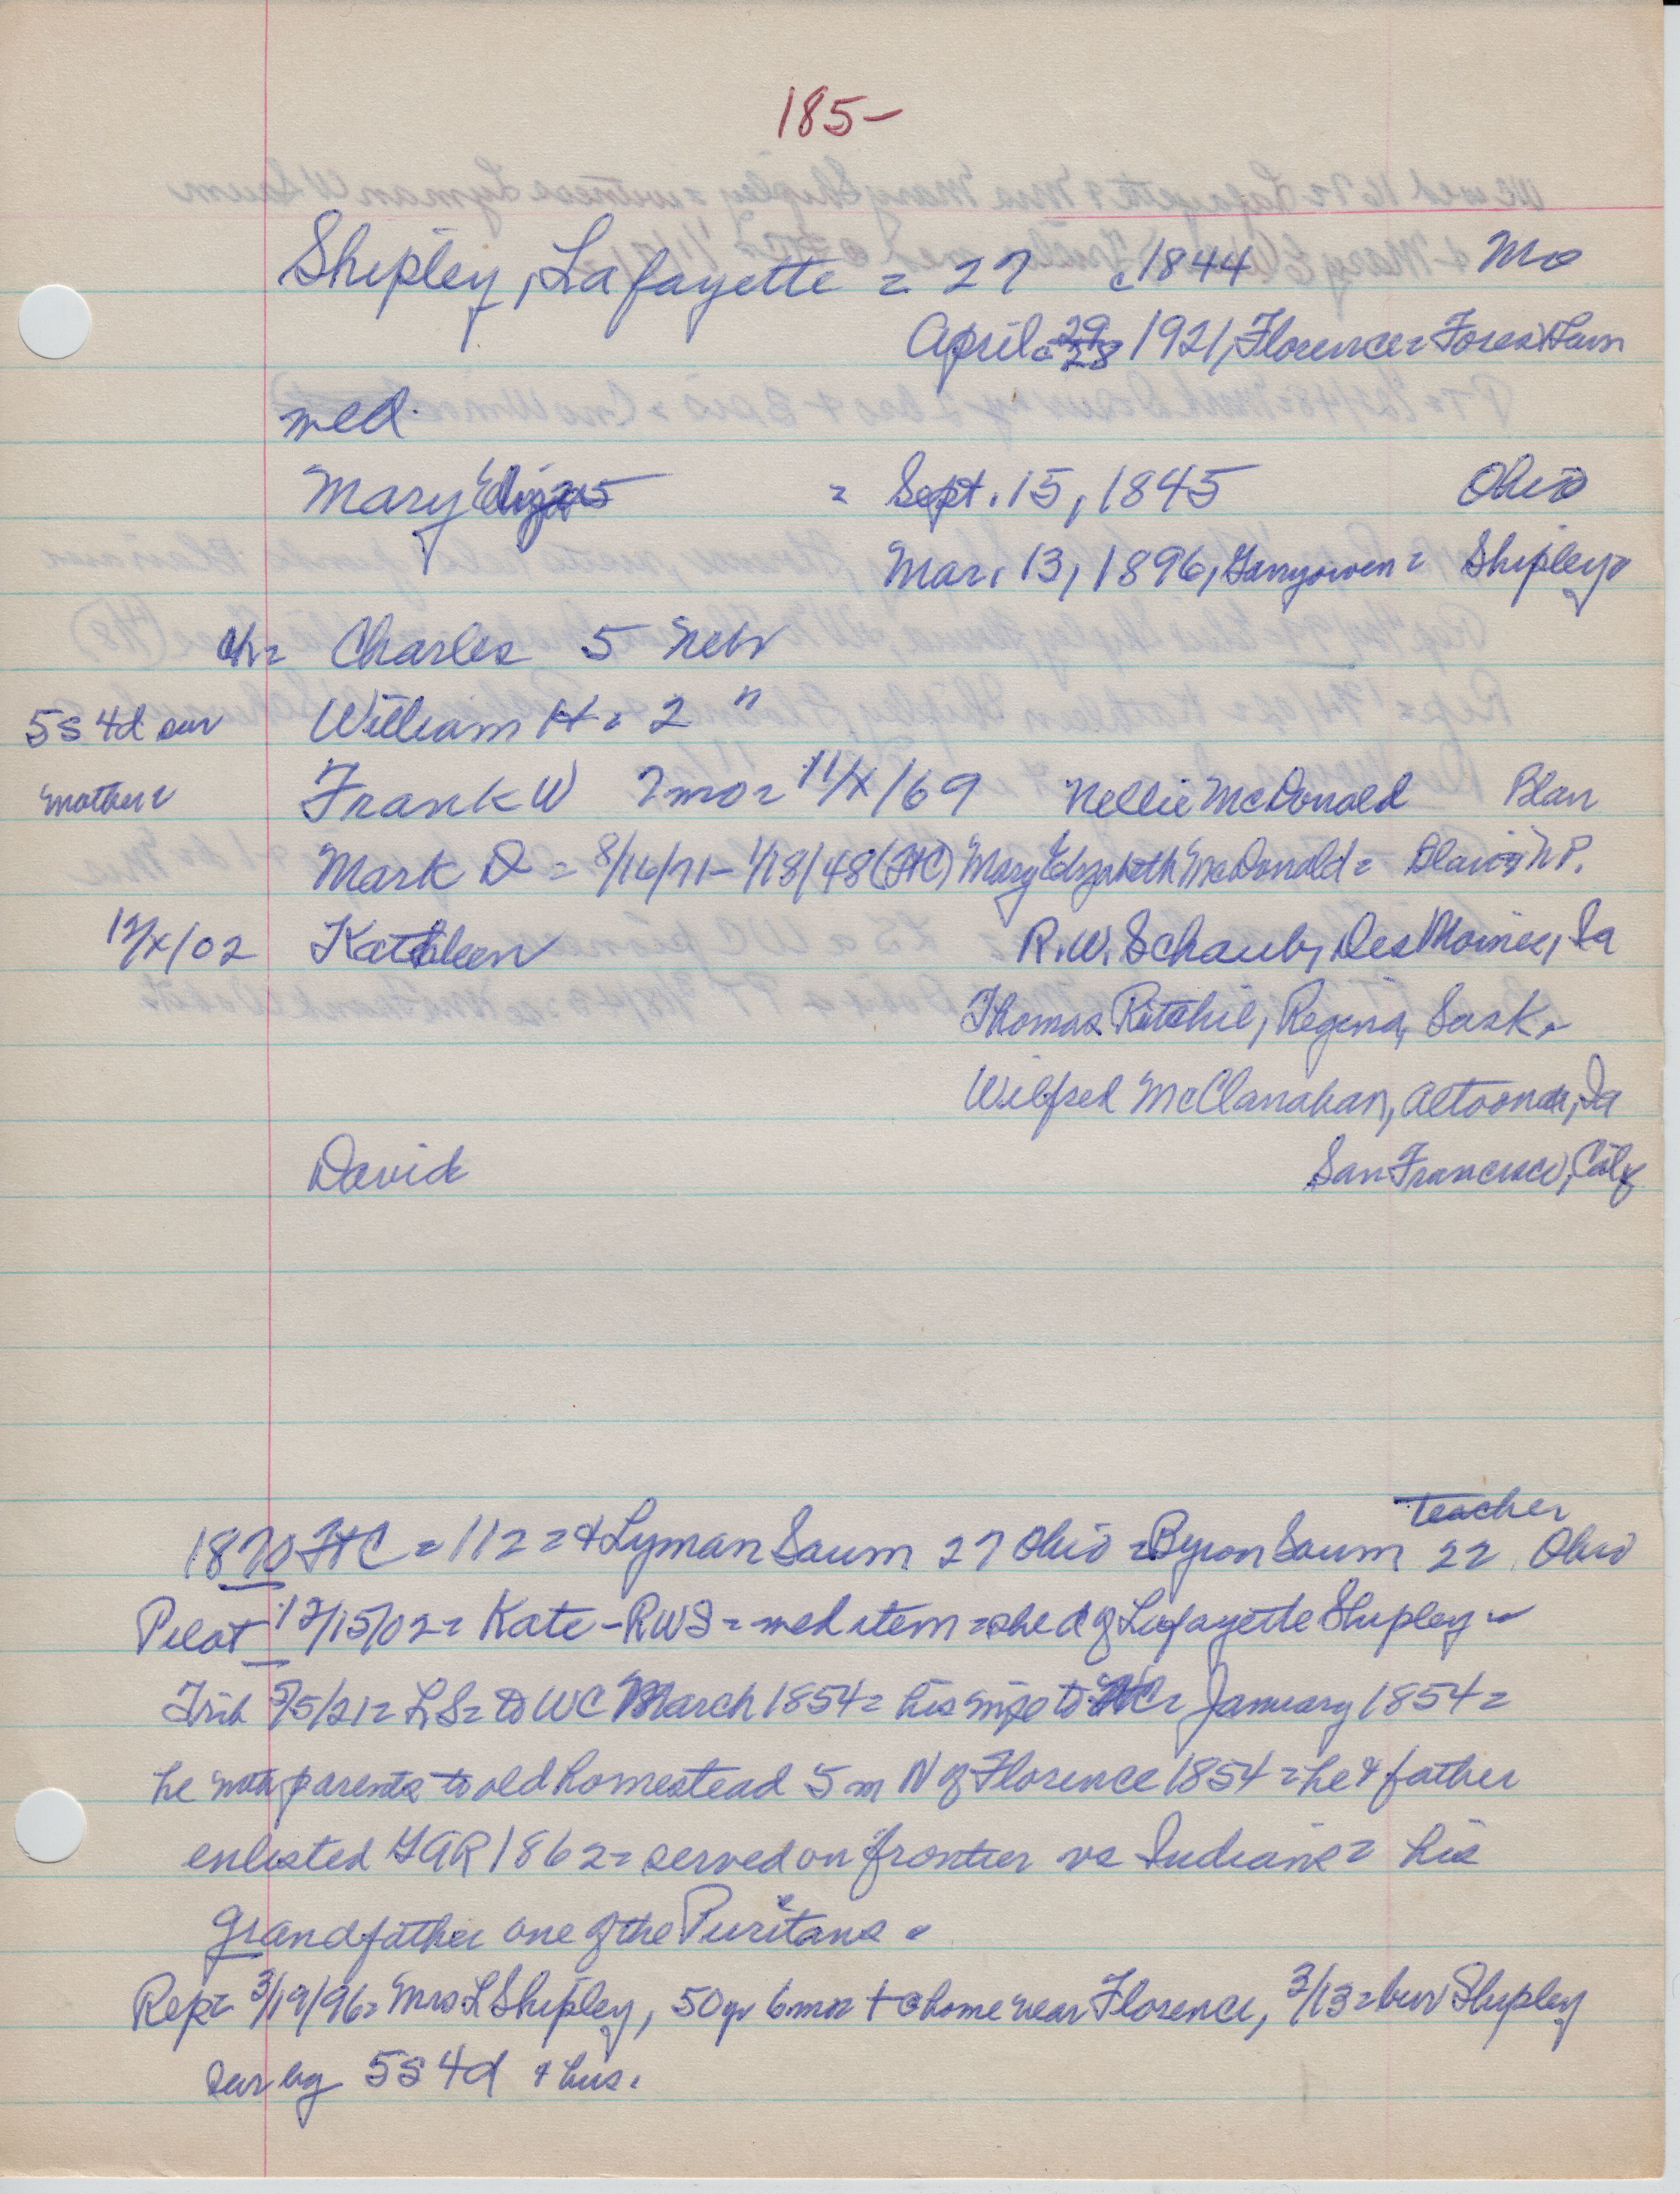 185-
Shipley, Lafayette = 27 c1844 Mo
April 1921, Florence = Forest Lawn
med.
Mary = Sept. 15, 1845 Ohio
Mar. 13, 1896, Garryowen = Shipley
ch = Charles 5 Nebr
5s 4d sur William H = 2 "
mother = Frank W 7mo = 11/X/69 Nellie McDonald Blair
Mark D = 8/16/71 - 1/18/48 (FtC) Mary Elizabeth McDonald = Blair N P.
12/X/02 Kathleen R.W. Schaub, Des Moines, Ia
Thomas Ritchie, Regina, Sask.
Wilfred McClanahan, Altoona, Ia
David San Francisco, Calif
teacher
1870 FtC = 112 = & Lyman Saum 27 Ohio = Byron Saum 22 Ohio
Pilot 12/15/02 = Kate - RWS = med item = she d of Lafayette Shipley
Trib 5/5/21 = LS = to WC March 1854 = his wife to WC = January 1854 =
he with parents to old homestead 5 m N of Florence 1854 = he & father
enlisted GAR 1862 = served on frontier vs Indians = his
grandfather one of the Puritans =
Rep = 3/19/96 = Mrs L Shipley, 50 yr 6 mo + @ home near Florence, 3/13 = bur Shipley
sur by 5s 4d & hus.